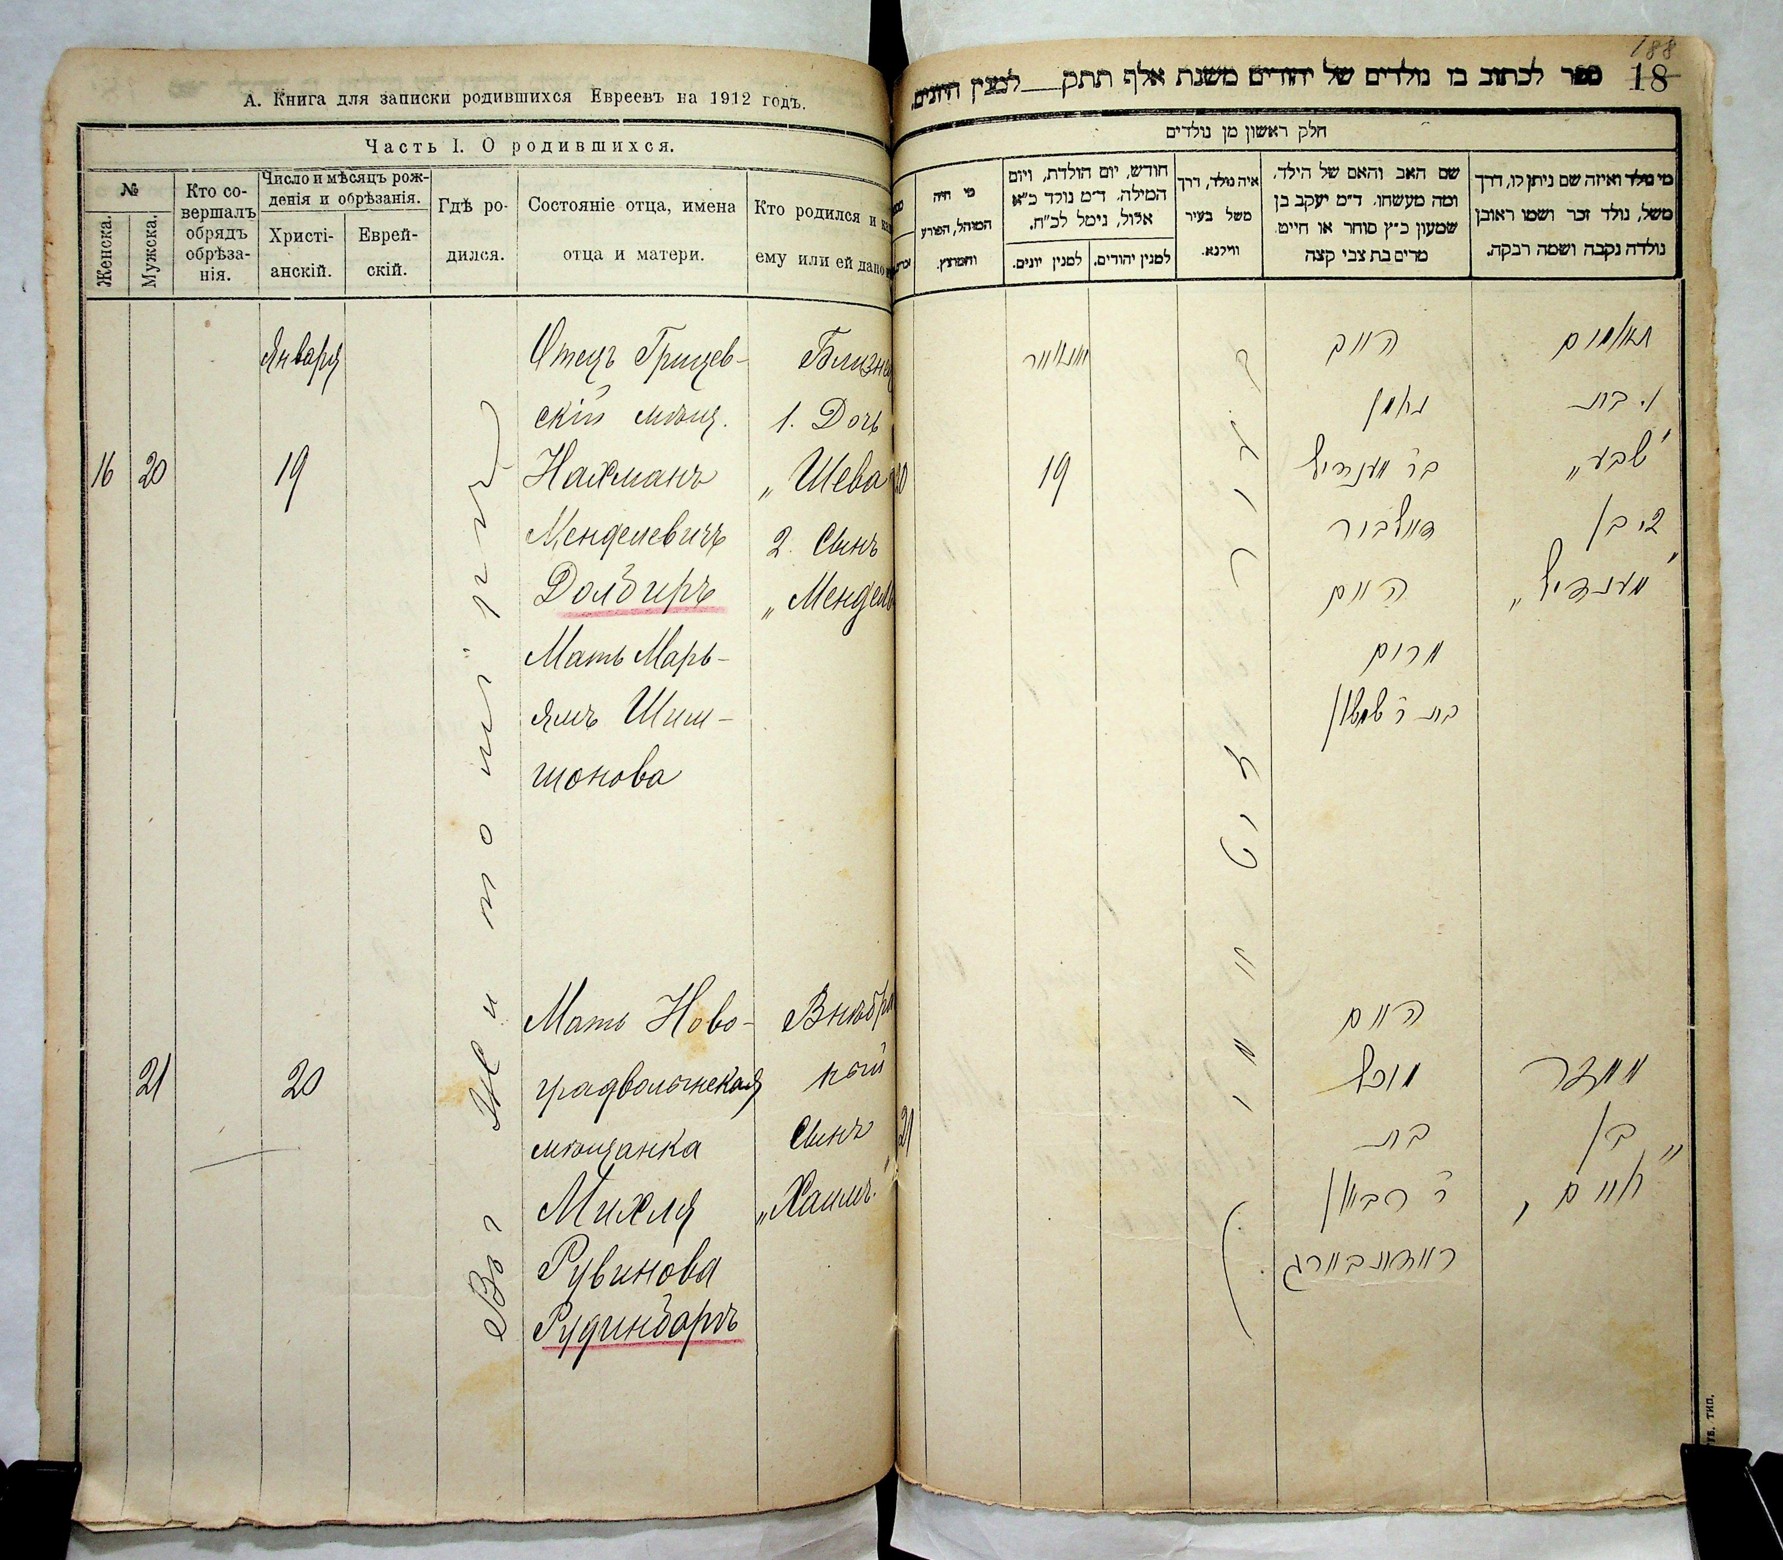 А. Книга для записки родившихся Евреевъ на 1912 годъ.
Часть I. О родившихся.
№
Женска.
Мужска.
Кто со-
вершалъ
обрядъ
обрѣза-
нія.
Число и мѣсяцъ рож-
денія и обрѣзанія.
Христі-
анскій.
Еврей-
скій.
Гдѣ ро-
дился.
Состояніе отца, имена
отца и матери.
Кто родился и
ему или ей дано
Января
16 20 19
Отецъ Грицев-
скій мѣщ.
Нахманъ
Менделевичъ
Долбиръ
Мать Марь-
ямъ Шим-
шонова
Близне
1. Дочь
„Шева
2. Сынъ
„Мендель
Въг Житомірѣ
21 20
Мать Ново-
градволынская
мѣщанка
Михля
Рувинова
Рудинборгъ
Внѣбра
ный
Сынъ
„Хаимъ"
188
18
ספר לכתוב בו נולדים של יהודים משנת אלף תתק__למנין היונים.
חלק ראשון מן נולדים
מי נולד ואיזה שם ניתן לו, דרך
משל, נולד זכר ושמו ראובן
נולדה נקבה ושמה רבקה.
שם האב והאם של הילד,
ומה מעשהו, ד״מ יעקב בן
שמעון כ״ץ סוחר או חייט
מרים בת צבי קצה
איה נולד, דרך
משל בעיר
ווילנא.
חודש, יום הולדת, ויום
המילה, ד״מ נולד כ״א
אלול, נימל לכ״ח.
למנין יהודים.
למנין יונים.
מי היה
המוהל, הפורע
והמוצץ.
תאומים
1. בת
„שבע"
2. בן
„מענדיל"
האב
נחמן
בר׳ מענדיל
דאלביר
האם
מרים
בת ר׳ שמשון
יאנואר
20 19
זיטאמיר
ממזר
בן
„חיים"
האם
מיכל
בת
ר׳ ראובן
רודינבורג
21